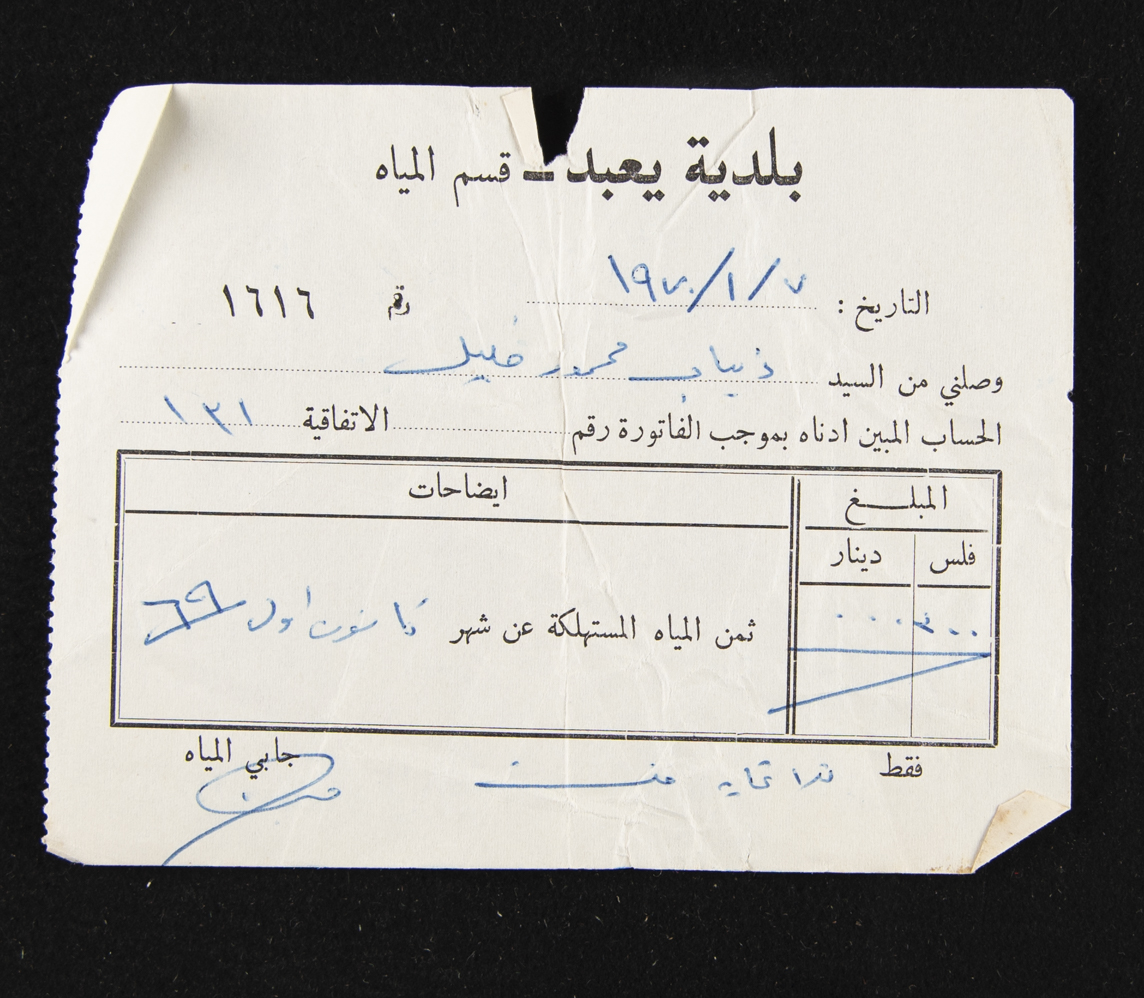 بلدية يعبد ـ قسم المياه
التاريخ : ٧/١/١٩٧٠ رقم ١٦١٦
وصلني من السيد ذياب محمود خليل
الحساب المبين ادناه بموجب الفاتورة رقم الاتفاقية ١٣١
المبلغ ايضاحات
فلس دينار
٣٠٠ ٠٠٠ ثمن المياه المستهلكة عن شهر كانون اول ٦٩
فقط ثلاثماية فلس جابي المياه